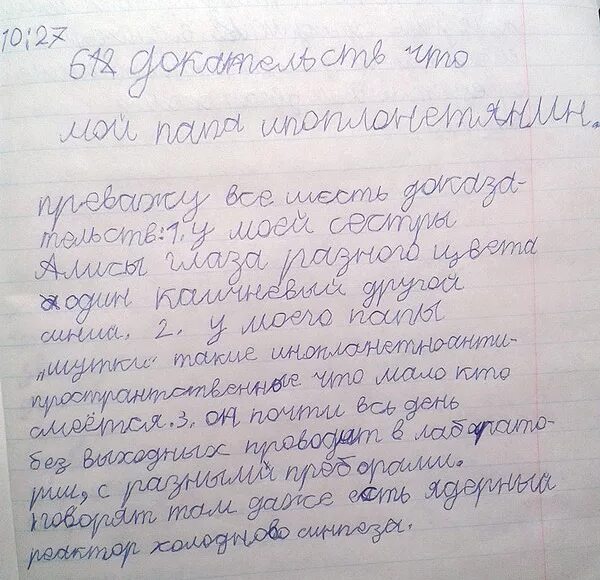 10:27
612 докательств что
мой папа инопланетянин.
преважу все шесть доказа-
тельств: 1. у моей сестры
Алисы глаза разного цвета
один каичневый другой
синий. 2. у моего папы
„шутки" такие инопланетно-анти-
пространтственные что мало кто
смеётся. 3. он почти всь день
без выходных проводит в лаборато-
рии, с разными преборами.
говорят там даже есть ядерный
реактор холодново синтеза.